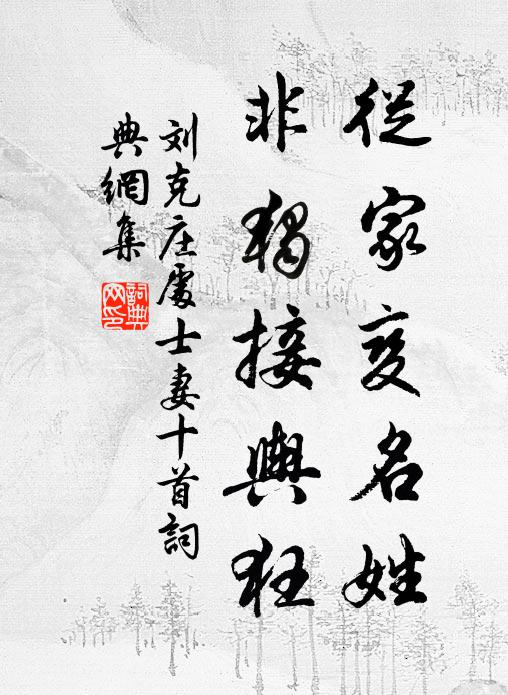 從家變名姓
非獨接輿狂
刘克庄處士妻十首詞
典網集
詞典網印